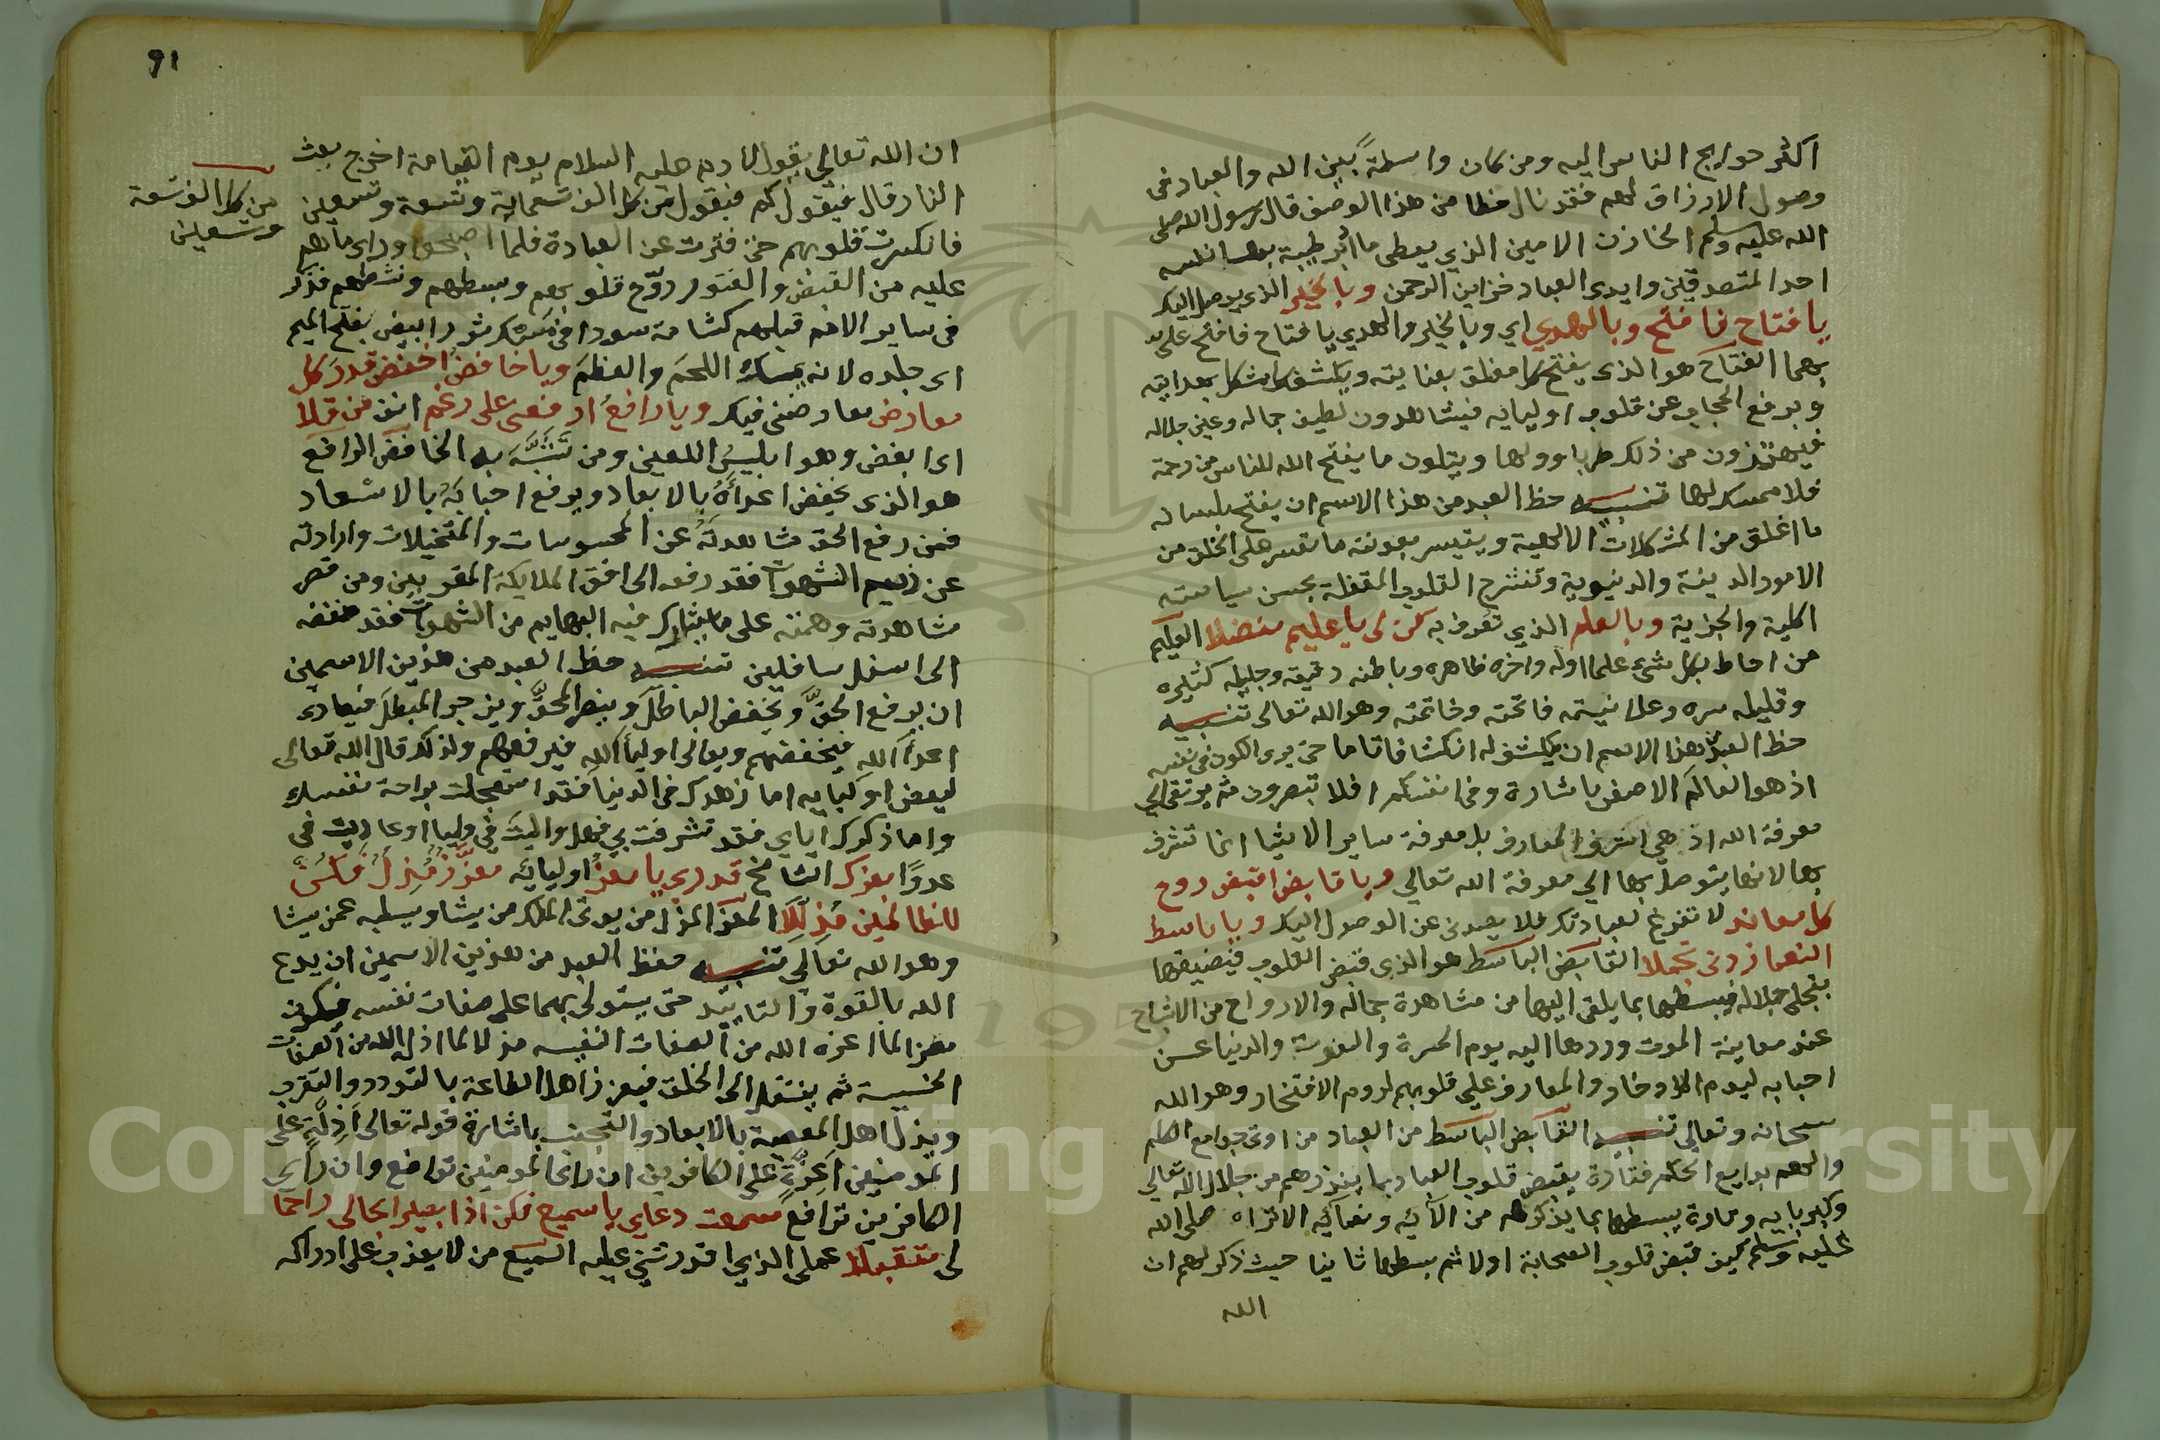 اكثر حوايج الناس اليه ومن كان واسطة بين الله والعباد في
وصول الارزاق لهم فقد نال حظا من هذا الوصف قال رسول الله صلى
الله عليه وسلم الخازن الامين الذي يعطى ما امر طيبة بها نفسه
احد المتصدقين وايدى العباد خزاين الرحمن وبالخير الذي يوصل اليك
يا فتاح فافتح وبالهدي اي وبالخير والهدي يا فتاح فافتح على
بهما الفتاح هو الذى يفتح كل مغلق بعنايته ويكشف كل مشكل بهدايته
ويرفع الحجاب عن قلوب اوليايه فيشاهدون لطيف جماله وعين جلاله
فيهتزون من ذلك طربا وولها ويتلون ما يفتح الله للناس من رحمة
فلا ممسك لها تنبيه حظ العبد من هذا الاسم ان يفتح بلسانه
ما اغلق من المشكلات الالهية ويتيسر بمعونته ما تعسر على الخلق من
الامور الدينية والدنيوية وتنشرح القلوب المقفلة بحسن سياسته
الكلية والجزية وبالعلم الذي تعرف به كن لى يا عليم مفضلا العليم
من احاط بكل شيء علما اوله واخره ظاهره وباطنه دقيقه وجليله كثيره
وقليله سره وعلانيته فاتحته وخاتمته وهو الله تعالى تنبيه
حظ العبد بهذا الاسم ان يكشف له انكشافا تاما حتى يرى الكون في نفسه
اذ هو العالم الاصغر باشارة وفى انفسكم افلا تبصرون ثم يرتقى الى
معرفة الله اذ هي اشرف المعارف بل معرفة ساير الاشيا انما تشرف
بها لانها يتوصل بها الي معرفة الله تعالي ويا قابض اقبض روح
كل معاند لا تفرغ لعبادتك فلا يصدنى عن الوصول اليك ويا باسط
النعما زدنى تجملا القابض الباسط هو الذى قبض القلوب فيضيقها
بتجلى جلاله فيبسطها بما يلقى اليها من مشاهدة جماله والارواح من الاشباح
عند معاينة الموت وردها اليه يوم الحسرة والفوت والدنيا عن
احبابه ليوم الادخار والمعارف على قلوبهم لروم الافتخار وهو الله
سبحانه وتعالي تنبيه القابض الباسط من العباد من اوتى جوامع الكلم
والهم بدايع الحكم فتارة يقبض قلوب العباد بما ينذرهم من جلال الله تعالي
وكبريايه وتارة يبسطها بما يذكرهم من الآئه ونعمآئه الا تراه صلى الله
عليه وسلم حين قبض قلوب الصحابة اولا ثم بسطها ثانيا حيث ذكر لهم ان
الله
91
ان الله تعالي يقول لادم عليه السلام يوم القيامة اخرج بعث
النار قال فيقول كم فيقول من كل الف تسعماية وتسعة وتسعين
من كل الف تسعة
وتسعين
فانكسرت قلوبهم حتى فترت عن العبادة فلما اصبحوا وراى ما هم
عليه من القبض والفتور روّح قلوبهم وبسطهم ونشطهم فذكر
فى ساير الامم قبلهم كشامة سودا فى مسك ثور ابيض بفتح الميم
اى جلده لانه يمسك اللحم والعظم ويا خافض اخفض قدر كل
معارض معارضنى فيك ويا رافع ارفعنى على رغم انف من قلا
اى ابغض وهو ابليس اللعين ومن تشبه به الخافض الرافع
هو الذى يخفض اعدآءه بالابعاد ويرفع احبابه بالاسعاد
فمن رفع الحق مشاهدته عن المحسوسات والمتخيلات وارادته
عن ذميم الشهوات فقد رفعه الى افق الملايكة المقربين ومن قصر
مشاهدته وهمته على ما يشارك فيه البهايم من الشهوات فقد خفضه
الى اسفل سافلين تنبيه حظ العبد من هذين الاسمين
ان يرفع الحق ويخفض الباطل وينصر المحق ويزجر المبطل فيعادى
اعدآء الله فيخفضهم ويوالى اوليآء الله فيرفعهم ولذلك قال الله تعالى
لبعض اوليايه اما زهدك فى الدنيا فقد استعجلت براحة نفسك
واما ذكرك اياي فقد تشرفت بي فهل واليت في وليا او عاديت فى
عدوا بعزك الشامخ قدرى يا معز اوليائه معززا منزل فكن
للظالمين مذللا المعز المذل من يوتى الملك من يشا ويسلبه عمن يشا
وهو الله تعالي تنبيه حظ العبد من هذين الاسمين ان يدع
الله بالقوة والتاييد حتى يستولى بهما على صفات نفسه فيكون
معزا لما اعزه الله من الصفات النفيسه مذلا لما اذل الله من الصفات
الخسيسة ثم ينتقل الى الخلق فيعز اهل الطاعة بالتودد والتقرب
ويذل اهل المعصية بالابعاد والتجنب باشارة قوله تعالى اذلة على
المومنين اعزة على الكافرين ان راى المومنين تواضع وان راى
الكافرين ترافع سمعت دعاي يا سميع فكن اذا بصير بحالى راحما
لى متقبلا عملى الذي اقدرتنى عليه السميع من لا يعزب على ادراكه